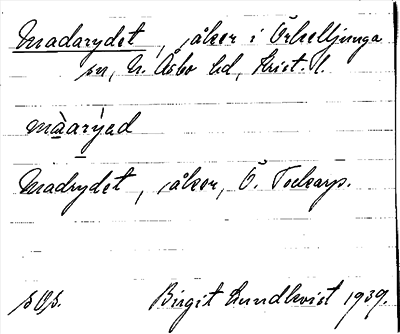 Madarydet, åker i Örkelljunga
sn, N. Åsbo hd, Krist. l.
màarýad
Madrydet, åker, Ö. Tockarp.
s o s.
Birgit Lundkvist 1939.